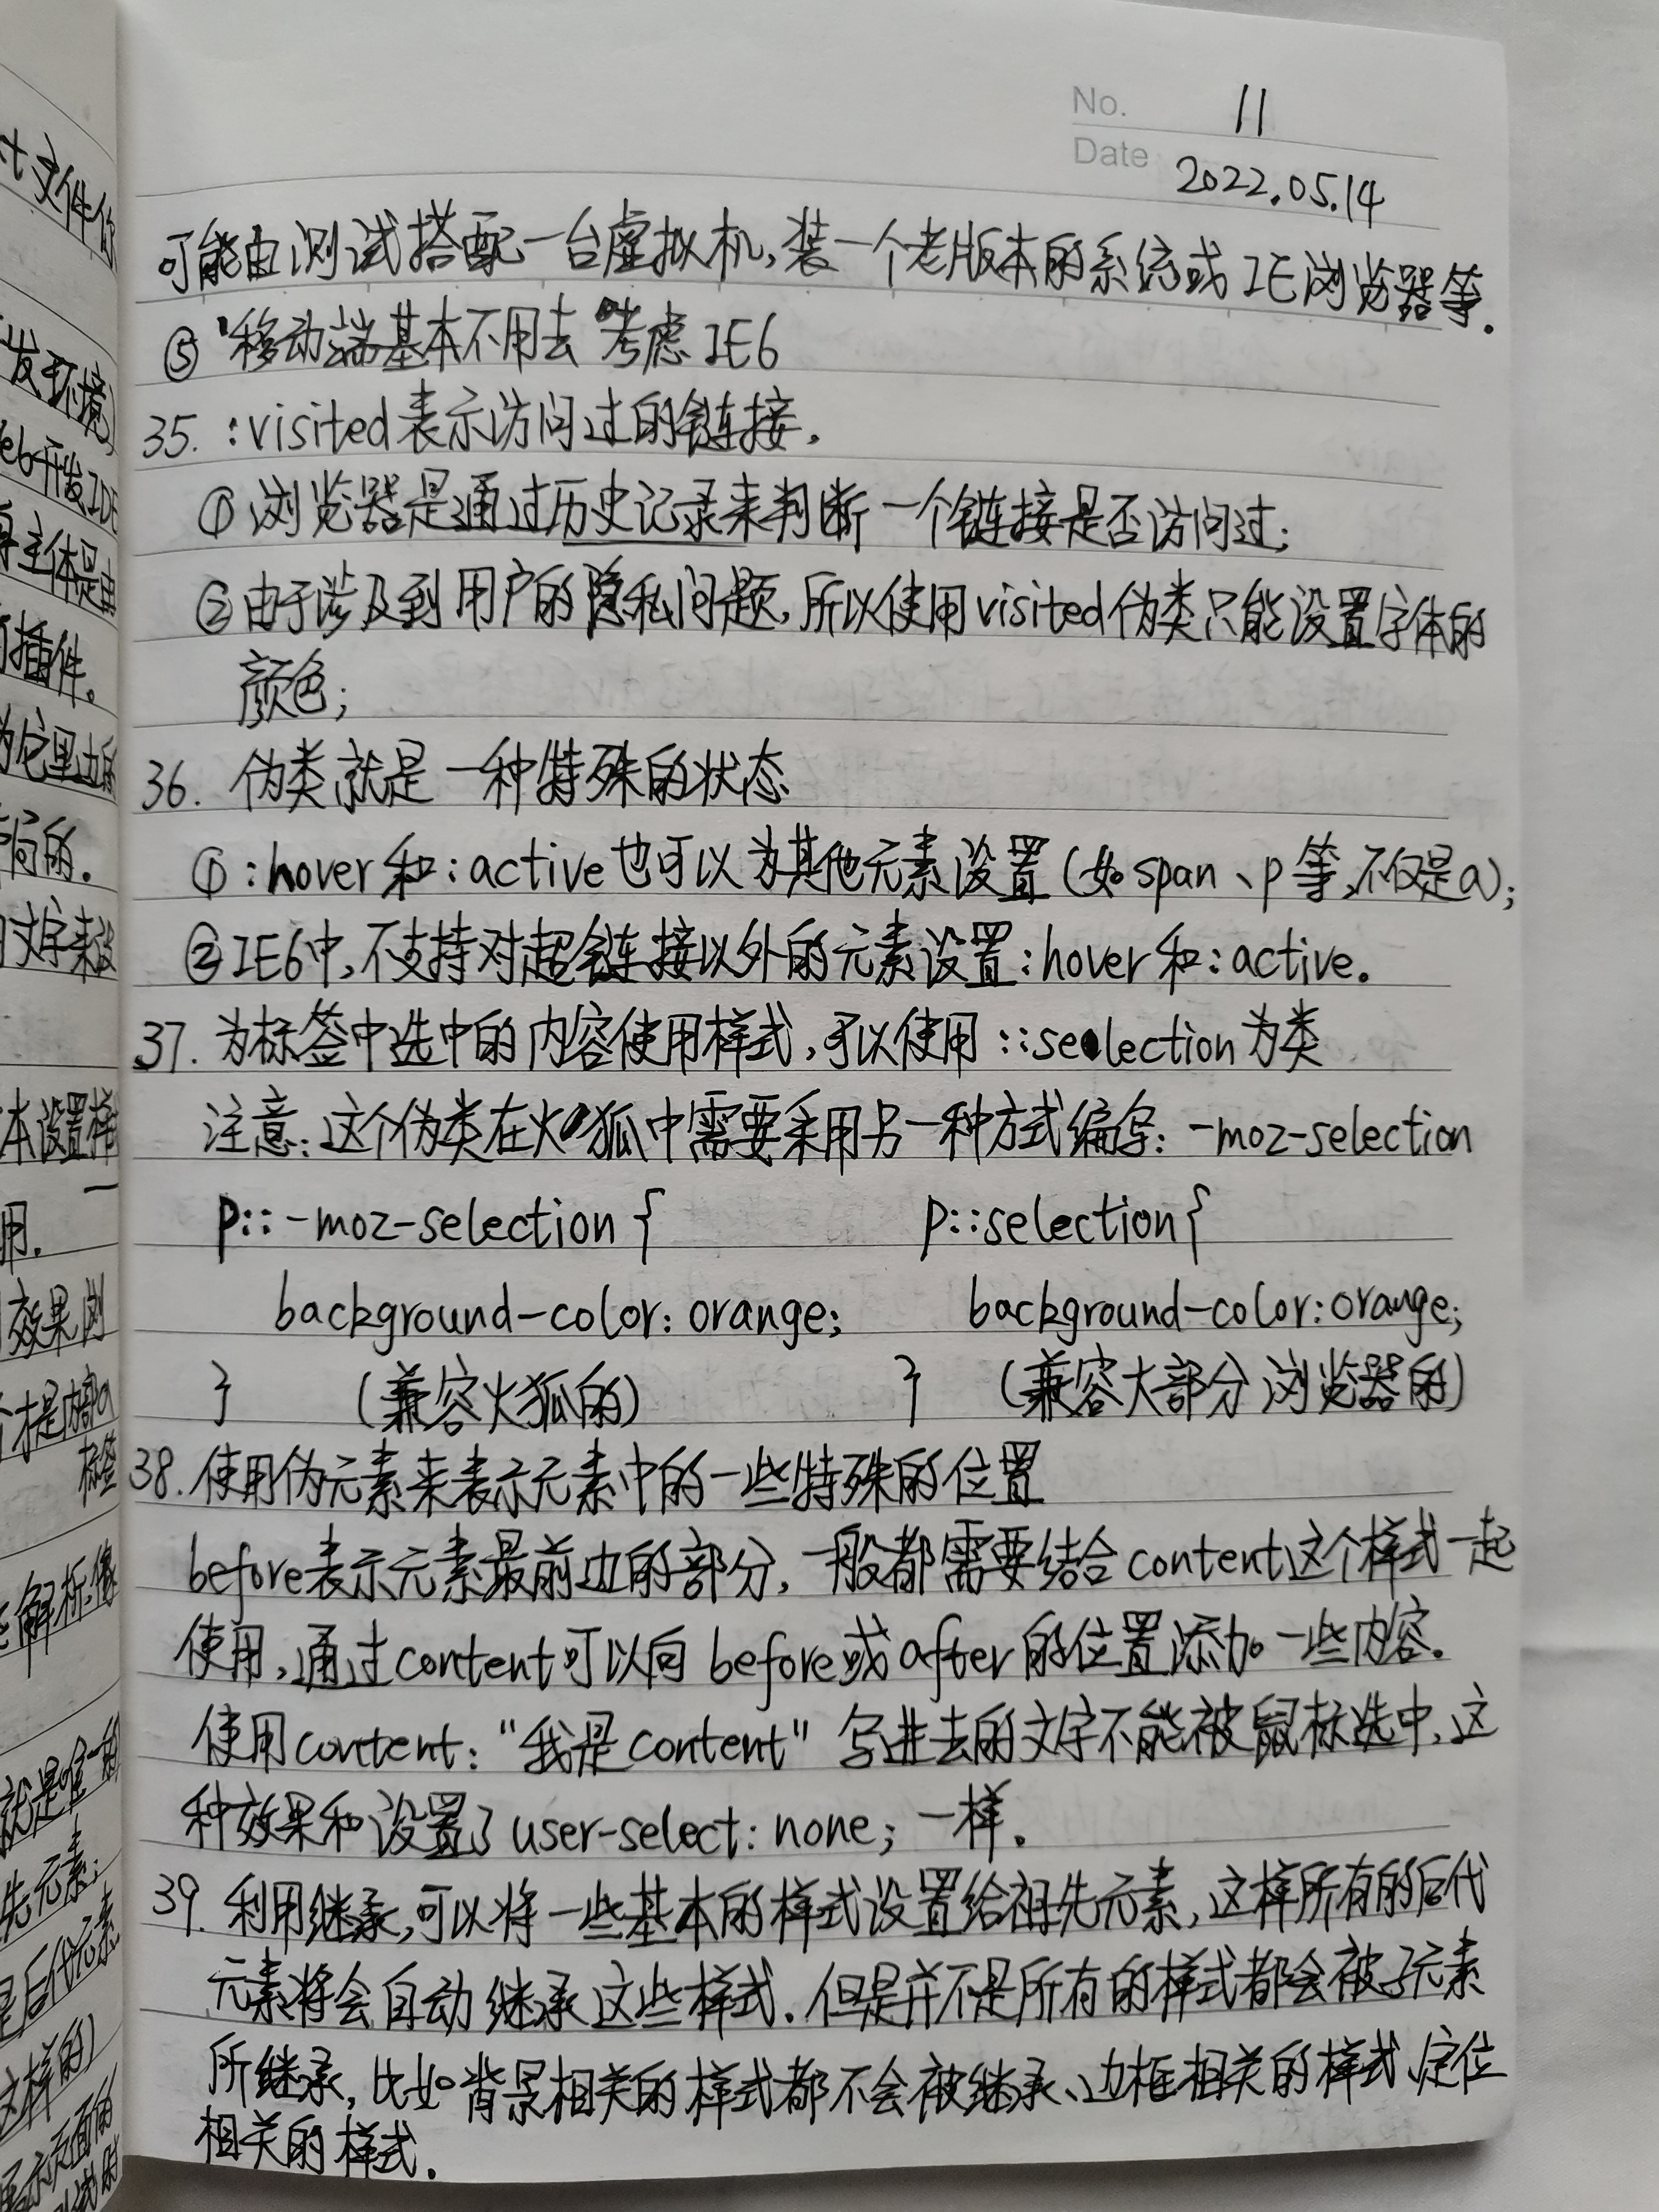 No. 11
Date 2022.05.14
可能由测试搭配一台虚拟机,装一个老版本的系统或IE浏览器等.
⑤ 移动端基本不用去考虑IE6
35. :visited表示访问过的链接.
① 浏览器是通过历史记录来判断一个链接是否访问过;
②由于涉及到用户的隐私问题,所以使用visited伪类只能设置字体的
颜色;
36. 伪类就是一种特殊的状态
① :hover和:active也可以为其他元素设置(如span、p等,不仅是a);
②IE6中,不支持对超链接以外的元素设置:hover和:active。
37. 为标签中选中的内容使用样式,可以使用::selection为类
注意:这个伪类在火狐中需要采用另一种方式编写: -moz-selection
p::-moz-selection { p::selection{
background-color: orange; background-color:orange;
} (兼容火狐的) } (兼容大部分浏览器的)
38. 使用伪元素来表示元素中的一些特殊的位置
before表示元素最前边的部分,一般都需要结合content这个样式一起
使用,通过content可以向before或after的位置添加一些内容.
使用content:"我是content"写进去的文字不能被鼠标选中,这
种效果和设置了user-select: none;一样.
39. 利用继承,可以将一些基本的样式设置给祖先元素,这样所有的后代
元素将会自动继承这些样式.但是并不是所有的样式都会被子元素
所继承,比如背景相关的样式都不会被继承、边框相关的样式、定位
相关的样式.
t文件你
发环境)
eb开发IDE
主体是由
插件。
为它里边的
局的.
文字来设
本设置样
用.
效果浏
才是内部a
标签
解析像
就是唯一的
先元素;
是后代元素
这样的)